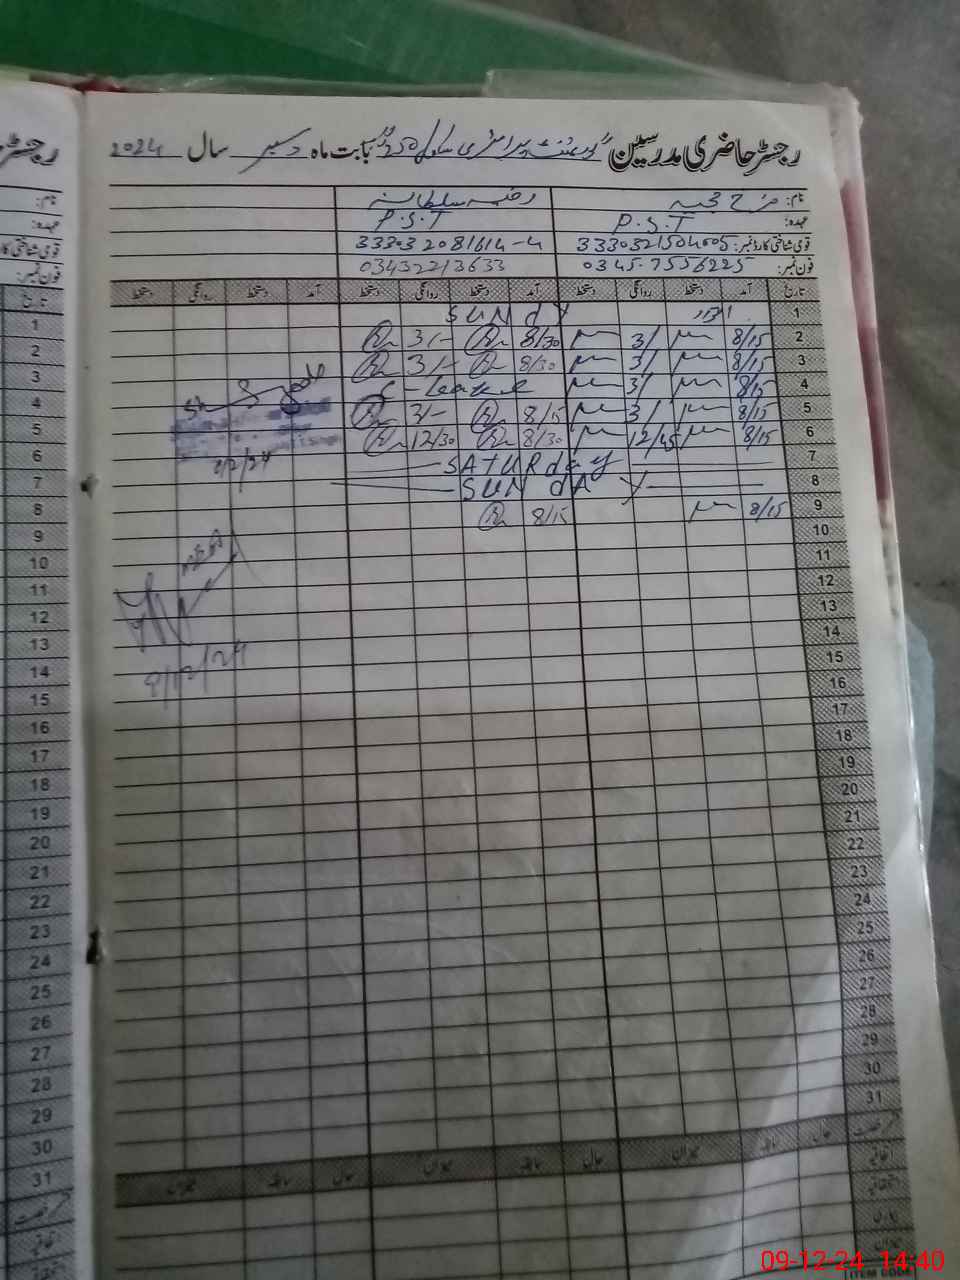 رجسٹر حاضری مدرسین گورنمنٹ پرائمری سکول بابت ماہ دسمبر سال 2024
نام: فرح رقیہ سلطانہ
عہدہ: P.S.T P.S.T
قومی شناختی کارڈ نمبر: 3330321504005 333032081614-4
فون نمبر: 0345.7556225 03432213633
تاریخ آمد دستخط روانگی دستخط آمد دستخط روانگی دستخط آمد دستخط روانگی دستخط
1 اتوار SUNdY
2 8/15 3/ 8/30 3/-
3 8/15 3/ 8/30 3/-
4 8/15 3/ C-leave
5 8/15 3/ 8/15 3/-
6 8/15 12/45 8/30 12/30
7 SATURday
8 SUNdAY
9 8/15 8/15
10
11
12
13
14
15
16
17
18
19
20
21
22
23
24
25
26
27
28
29
30
31
حال سابقہ میزان حال سابقہ میزان حال سابقہ میزان
اتفاقیہ
استحقاقیہ
بیماری
میزان
ITEM CODE
رجسٹر
نام:
عہدہ:
قومی شناختی کارڈ
فون نمبر:
تاریخ
1
2
3
4
5
6
7
8
9
10
11
12
13
14
15
16
17
18
19
20
21
22
23
24
25
26
27
28
29
30
31
اتفاقیہ
09-12-24 14:40